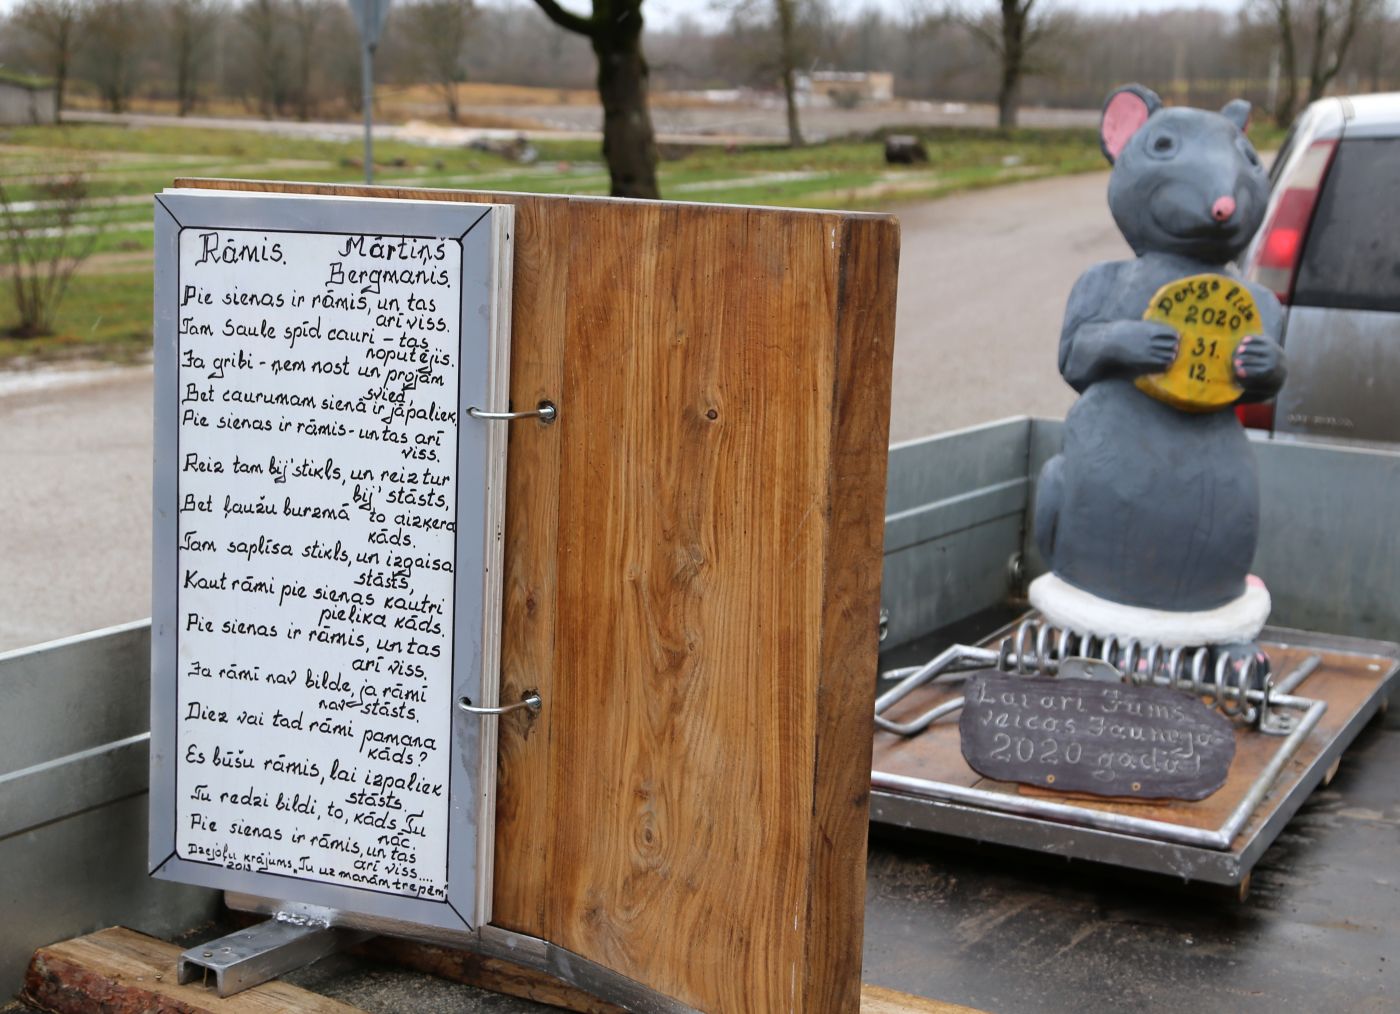 Rāmis. Mārtiņš
Bergmanis.
Pie sienas ir rāmis, un tas
arī viss.
Tam Saule spīd cauri – tas
noputējis.
Ja gribi – ņem nost un projām
svied,
Bet caurumam sienā ir jāpaliek,
Pie sienas ir rāmis – un tas arī
viss.
Reiz tam bij' stikls, un reiz tur
bij' stāsts,
Bet ļaužu burzmā to aizķēra
kāds.
Tam saplīsa stikls, un izgaisa
stāsts,
Kaut rāmi pie sienas kautri
pielika kāds.
Pie sienas ir rāmis, un tas
arī viss.
Ja rāmī nav bilde, ja rāmī
nav stāsts,
Diez vai tad rāmi pamana
kāds?
Es būšu rāmis, lai izpaliek
stāsts.
Tu redzi bildi, to, kāds Tu
nāc.
Pie sienas ir rāmis, un tas
arī viss....
Dzejoļu krājums „Tu uz manām trepēm"
2013
Derīgs līdz
2020
31.
12.
Lai arī Jums
veicas Jaunajā
2020 gadā!